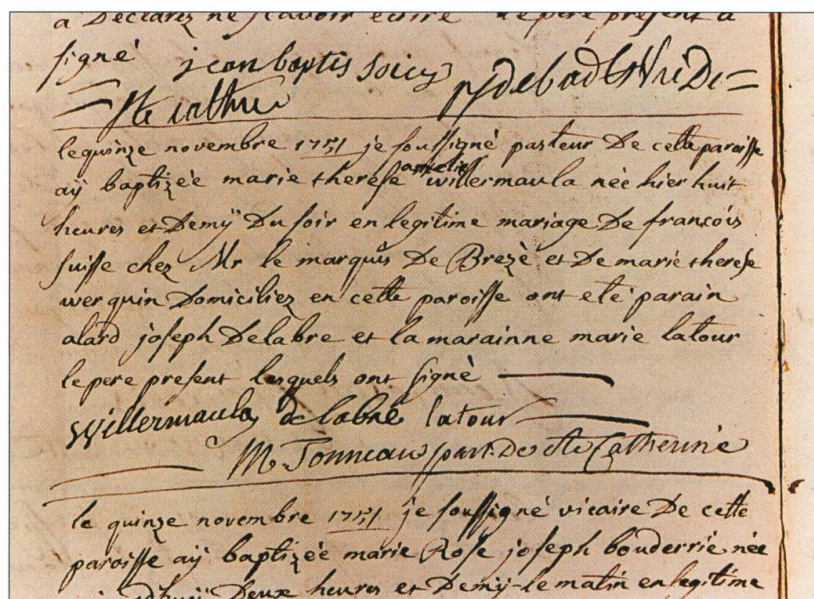 a Declarez ne scavoir ecrire le pere present a
signé jean baptis soicy
Ste cathe
le quinze novembre 1751 je soussigné pasteur De cette paroisse
aÿ baptizée marie therese amelie willermaula née hier huit
heures et Demÿ Du soir en legitime mariage De francois
suisse chez Mr le marquis De Brezé et De marie therese
werquin Domiciliez en cette paroisse ont eté parain
alard joseph Delabre et la marainne marie latour
le pere present lesquels ont signé
Willermaula delabre latour
M Tonneau past. De Ste Catherine
le quinze novembre 1751 je soussigné vicaire De cette
paroisse aÿ baptizée marie Rose joseph bouderrie née
Deux heures et Demÿ le matin en legitime